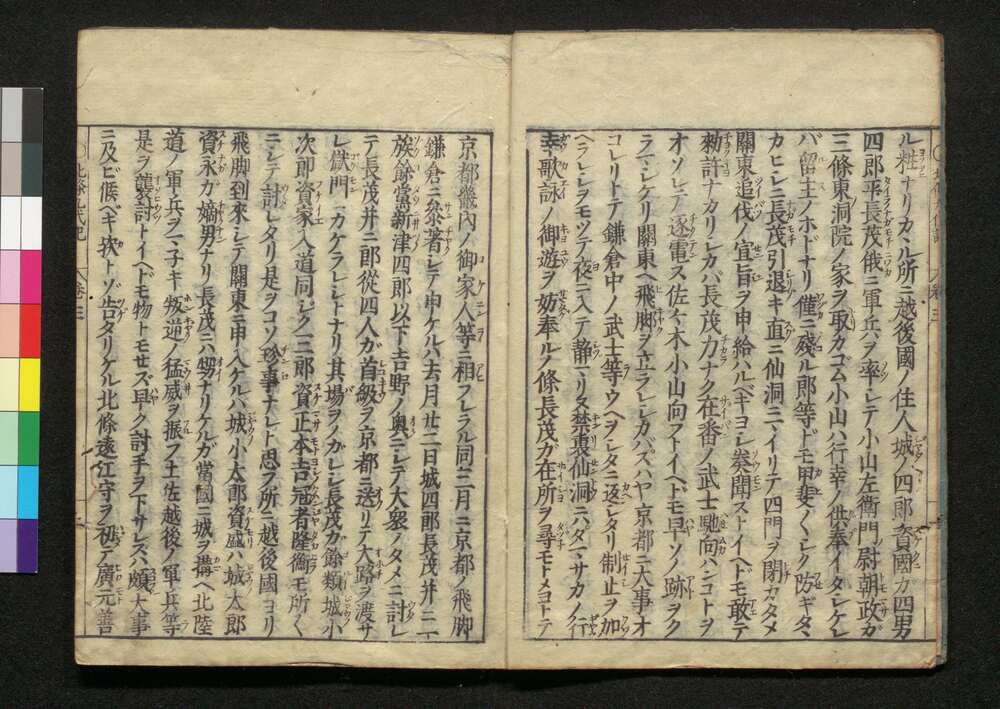 ル粧ナリカヽル所ニ越後國ノ住人城ノ四郎資國カ四男
四郎平長茂俄ニ軍兵ヲ率シテ小山左衛門ノ尉朝政カ
三條東洞院ノ家ヲ取カコム小山ハ行幸ノ供奉イタシケレ
バ留主ノホドナリ僅ニ殘ル郎等ドモ甲斐〱シク防ギタヽ
カヒシニ長茂引退キ直ニ仙洞ニマイリテ四門ヲ閉カタメ
關東追伐ノ宣旨ヲ申給ハルベキヨシ奏聞ストイヘドモ敢テ
勅許ナカリシカバ長茂力ナク在番ノ武士馳向ハンコトヲ
オソレテ逐電ス佐々木小山向フトイヘドモ早ソノ跡ヲク
ラマシケリ關東ヘ飛脚ヲ立ラレシカバスハヤ京都ニ大事オ
コレリトテ鎌倉中ノ武士等ウヘヲシタニ返シタリ制止ヲ加
ヘラレシヲモツテ夜ニ入テ靜マリヌ禁裏仙洞ニハタヽサカノ行
幸歌詠ノ御遊ヲ妨奉ルノ條長茂ガ在所ヲ尋モトメコトテ
京都畿內ノ御家人等ニ相フレラル同二月ニ京都ノ飛脚
鎌倉ニ參著シテ申ケルハ去月廿二日城四郎長茂并ニ一
族餘黨新津四郎以下吉野ノ奧ニシテ大衆ノタメニ討レ
テ長茂并ニ郎從四人ガ首級ヲ京都ニ送リテ大路ヲ渡サ
レ獄門ニカケラレシトナリ其場ヲノカレシ長茂カ餘類城小
次郎資家入道同シク三郎資正本吉冠者隆衡モ所〱
ニシテ討レタリ是ヲコソ珍事ナレト思フ所ニ越後國ヨリ
飛脚到來シテ關東ニ申入ケルハ城小太郎資盛ハ城太郎
資永ガ嫡男ナリ長茂ニハ甥ナリケルガ當國ニ城ヲ構ヘ北陸
道ノ軍兵ヲマ子キ叛逆ノ猛威ヲ振フ土佐越後ノ軍兵等
是ヲ襲討トイヘドモ物トモセズ早ク討手ヲ下サレズハ頗大事
ニ及ビ候ベキ歟トゾ告タリケル北條遠江守ヲ初テ廣元善